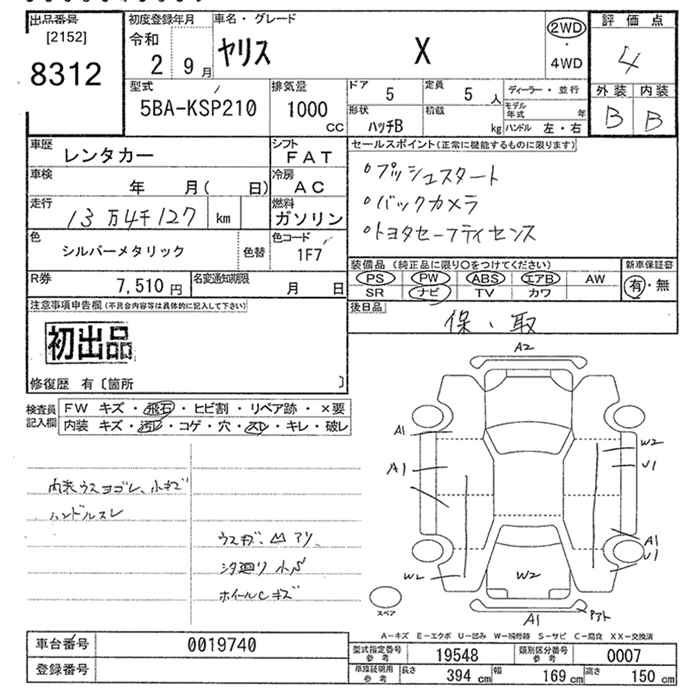 出品番号
[2152]
8312
初度登録年月
令和
2 9月
車名・グレード
ヤリス X
2WD
・
4WD
評価点
4
外装 内装
B B
型式
5BA-KSP210
排気量
1000
CC
ドア
5
定員
5 人
形状
ハッチB
積載
kg
ディーラー・並行
モデル年式 年
ハンドル 左・右
車歴
レンタカー
シフト
FAT
車検
年 月( 日)
冷房
AC
走行
13万4千127 km
燃料
ガソリン
色
シルバーメタリック
色替
色コード
1F7
R券
7,510円
名変通知期限
月 日
セールスポイント(正常に機能するものに限ります)
・プッシュスタート
・バックカメラ
・トヨタセーフティセンス
装備品(純正品に限り○をつけてください)
PS PW ABS エアB AW
SR ナビ TV カワ
新車保証書
有・無
後日品
保・取
注意事項申告欄(不具合内容等は具体的に記入して下さい)
初出品
修復歴 有〔箇所 〕
検査員
記入欄
FW キズ・飛石・ヒビ割・リペア跡・×要
内装 キズ・汚レ・コゲ・穴・スレ・キレ・破レ
内装ウスヨゴレ、小キズ
ハンドルスレ
ウスキズ・凹アリ
下廻り小サビ
ホイールCキズ
A2
A1
A1
W2
U1
A1
U1
W2
W2
A1
スペア
A-キズ E-エクボ U-凹み W-補修跡 S-サビ C-腐食 XX-交換済
車台番号
0019740
登録番号
型式指定番号
参考
19548
類別区分番号
参考
0007
車庫証明用
参考
長さ
394 cm
幅
169 cm
高さ
150 cm